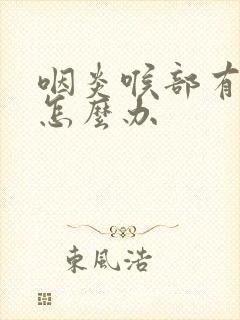 咽炎喉部有
怎麼办
東風浩